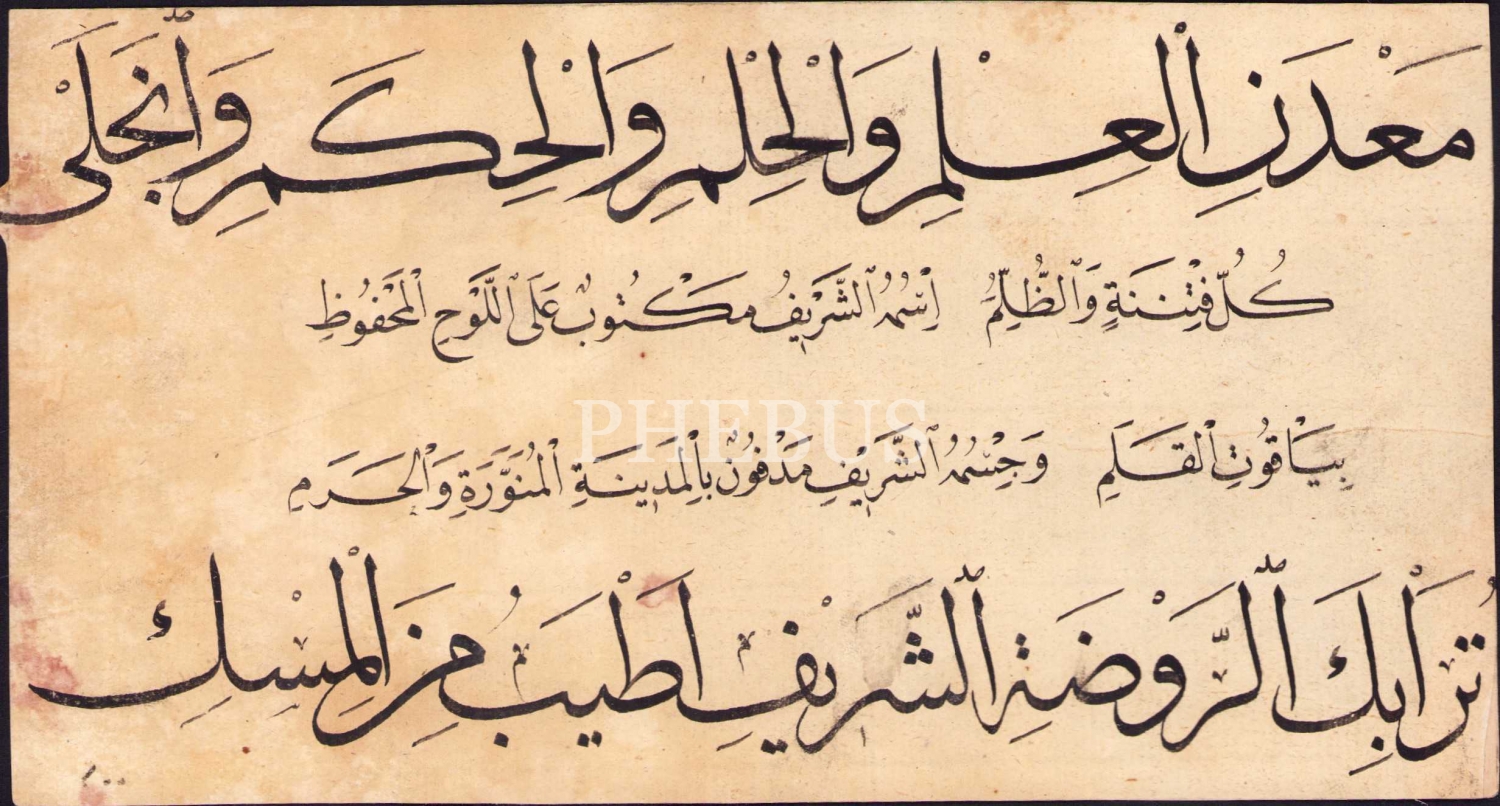 مَعْدَنِ الْعِلْمِ وَالْحِلْمِ وَالْحِكَمِ وَانْجَلَى
كُلُّ فِتْنَةٍ وَالظُّلَمُ اِسْمُهُ الشَّرِيفُ مَكْتُوبٌ عَلَى اللَّوْحِ الْمَحْفُوظِ
بِيَاقُوتِ الْقَلَمِ وَجِسْمُهُ الشَّرِيفِ مَدْفُونٌ بِالْمَدِينَةِ الْمُنَوَّرَةِ وَالْحَرَمِ
PHEBUS
تُرَابِكَ الرَّوْضَةِ الشَّرِيفِ اَطْيَبُ مِنَ الْمِسْكِ